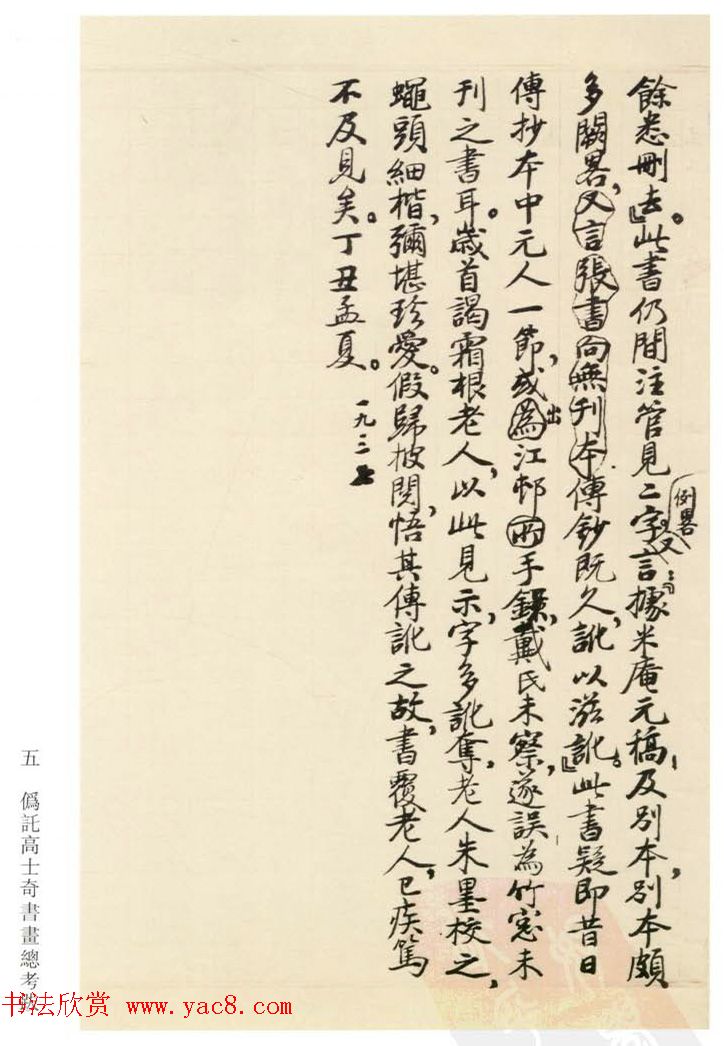 餘悉刪去。』此書仍間注管見二字。又例畧言:『據米庵元稿,及別本,別本頗
多闕畧,又言張書向無刊本傳鈔既久,訛以滋訛。』此書疑即昔日
傳抄本中元人一節,或為出江邨所手錄,戴氏未察,遂誤為竹窗未
刊之書耳。歲首謁霜根老人,以此見示,字多訛奪,老人朱墨校之,
蠅頭細楷,彌堪珍愛。假歸披閱,悟其傳訛之故,書覆老人,已疾篤
不及見矣。丁丑孟夏。
一九三七
五 僞託高士奇書畫總考跋
书法欣赏 www.yac8.com